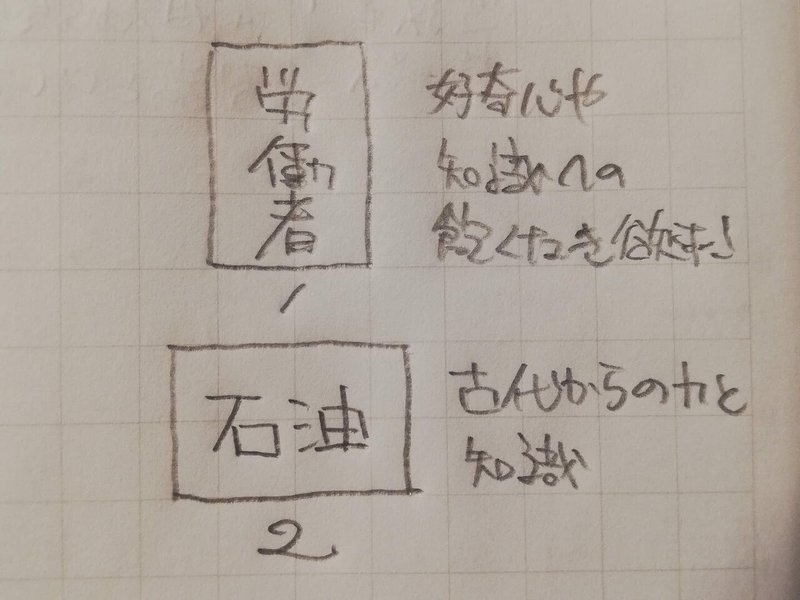 労働者
好奇心や
知識への
飽くなき欲求!
1
石油
古代からの力と
知識
2